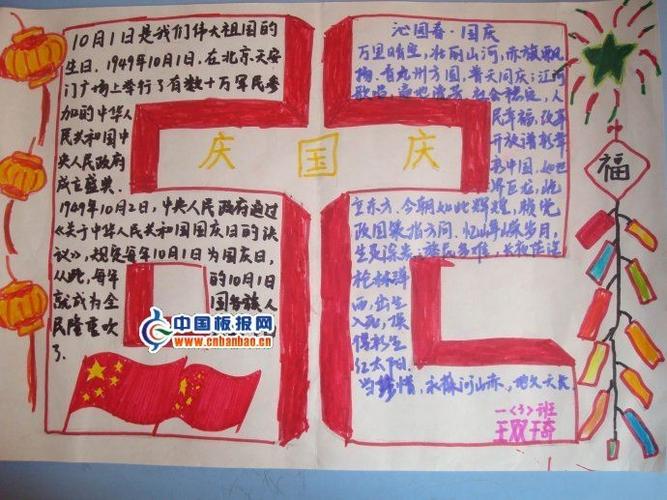 10月1日是我们伟大祖国的
生日.1949年10月1日.在北京天安
门广场上举行了有数十万军民参
加的中华人
民共和国中
央人民政府
成立盛典.
1949年10月2日,中央人民政府通过
《关于中华人民共和国国庆日的决
议》,规定每年10月1日为国庆日,
从此,每年的10月1日
就成为全国各族人
民隆重欢
了.
庆国庆
沁园春·国庆
万里晴空,壮丽山河,赤旗飘
扬.看九州方圆,普天同庆;江河
社会稳定,人
民幸福,改革
开放谱彩章
中国,如世
界巨龙,屹
立东方.今朝如此辉煌,赖党
政国策指方向.忆岁月,
枪林弹
雨,出生
入死,换
得新生
红太阳.
永葆河山赤,
福
一(3)班
中国板报网
www.cnbanbao.cn